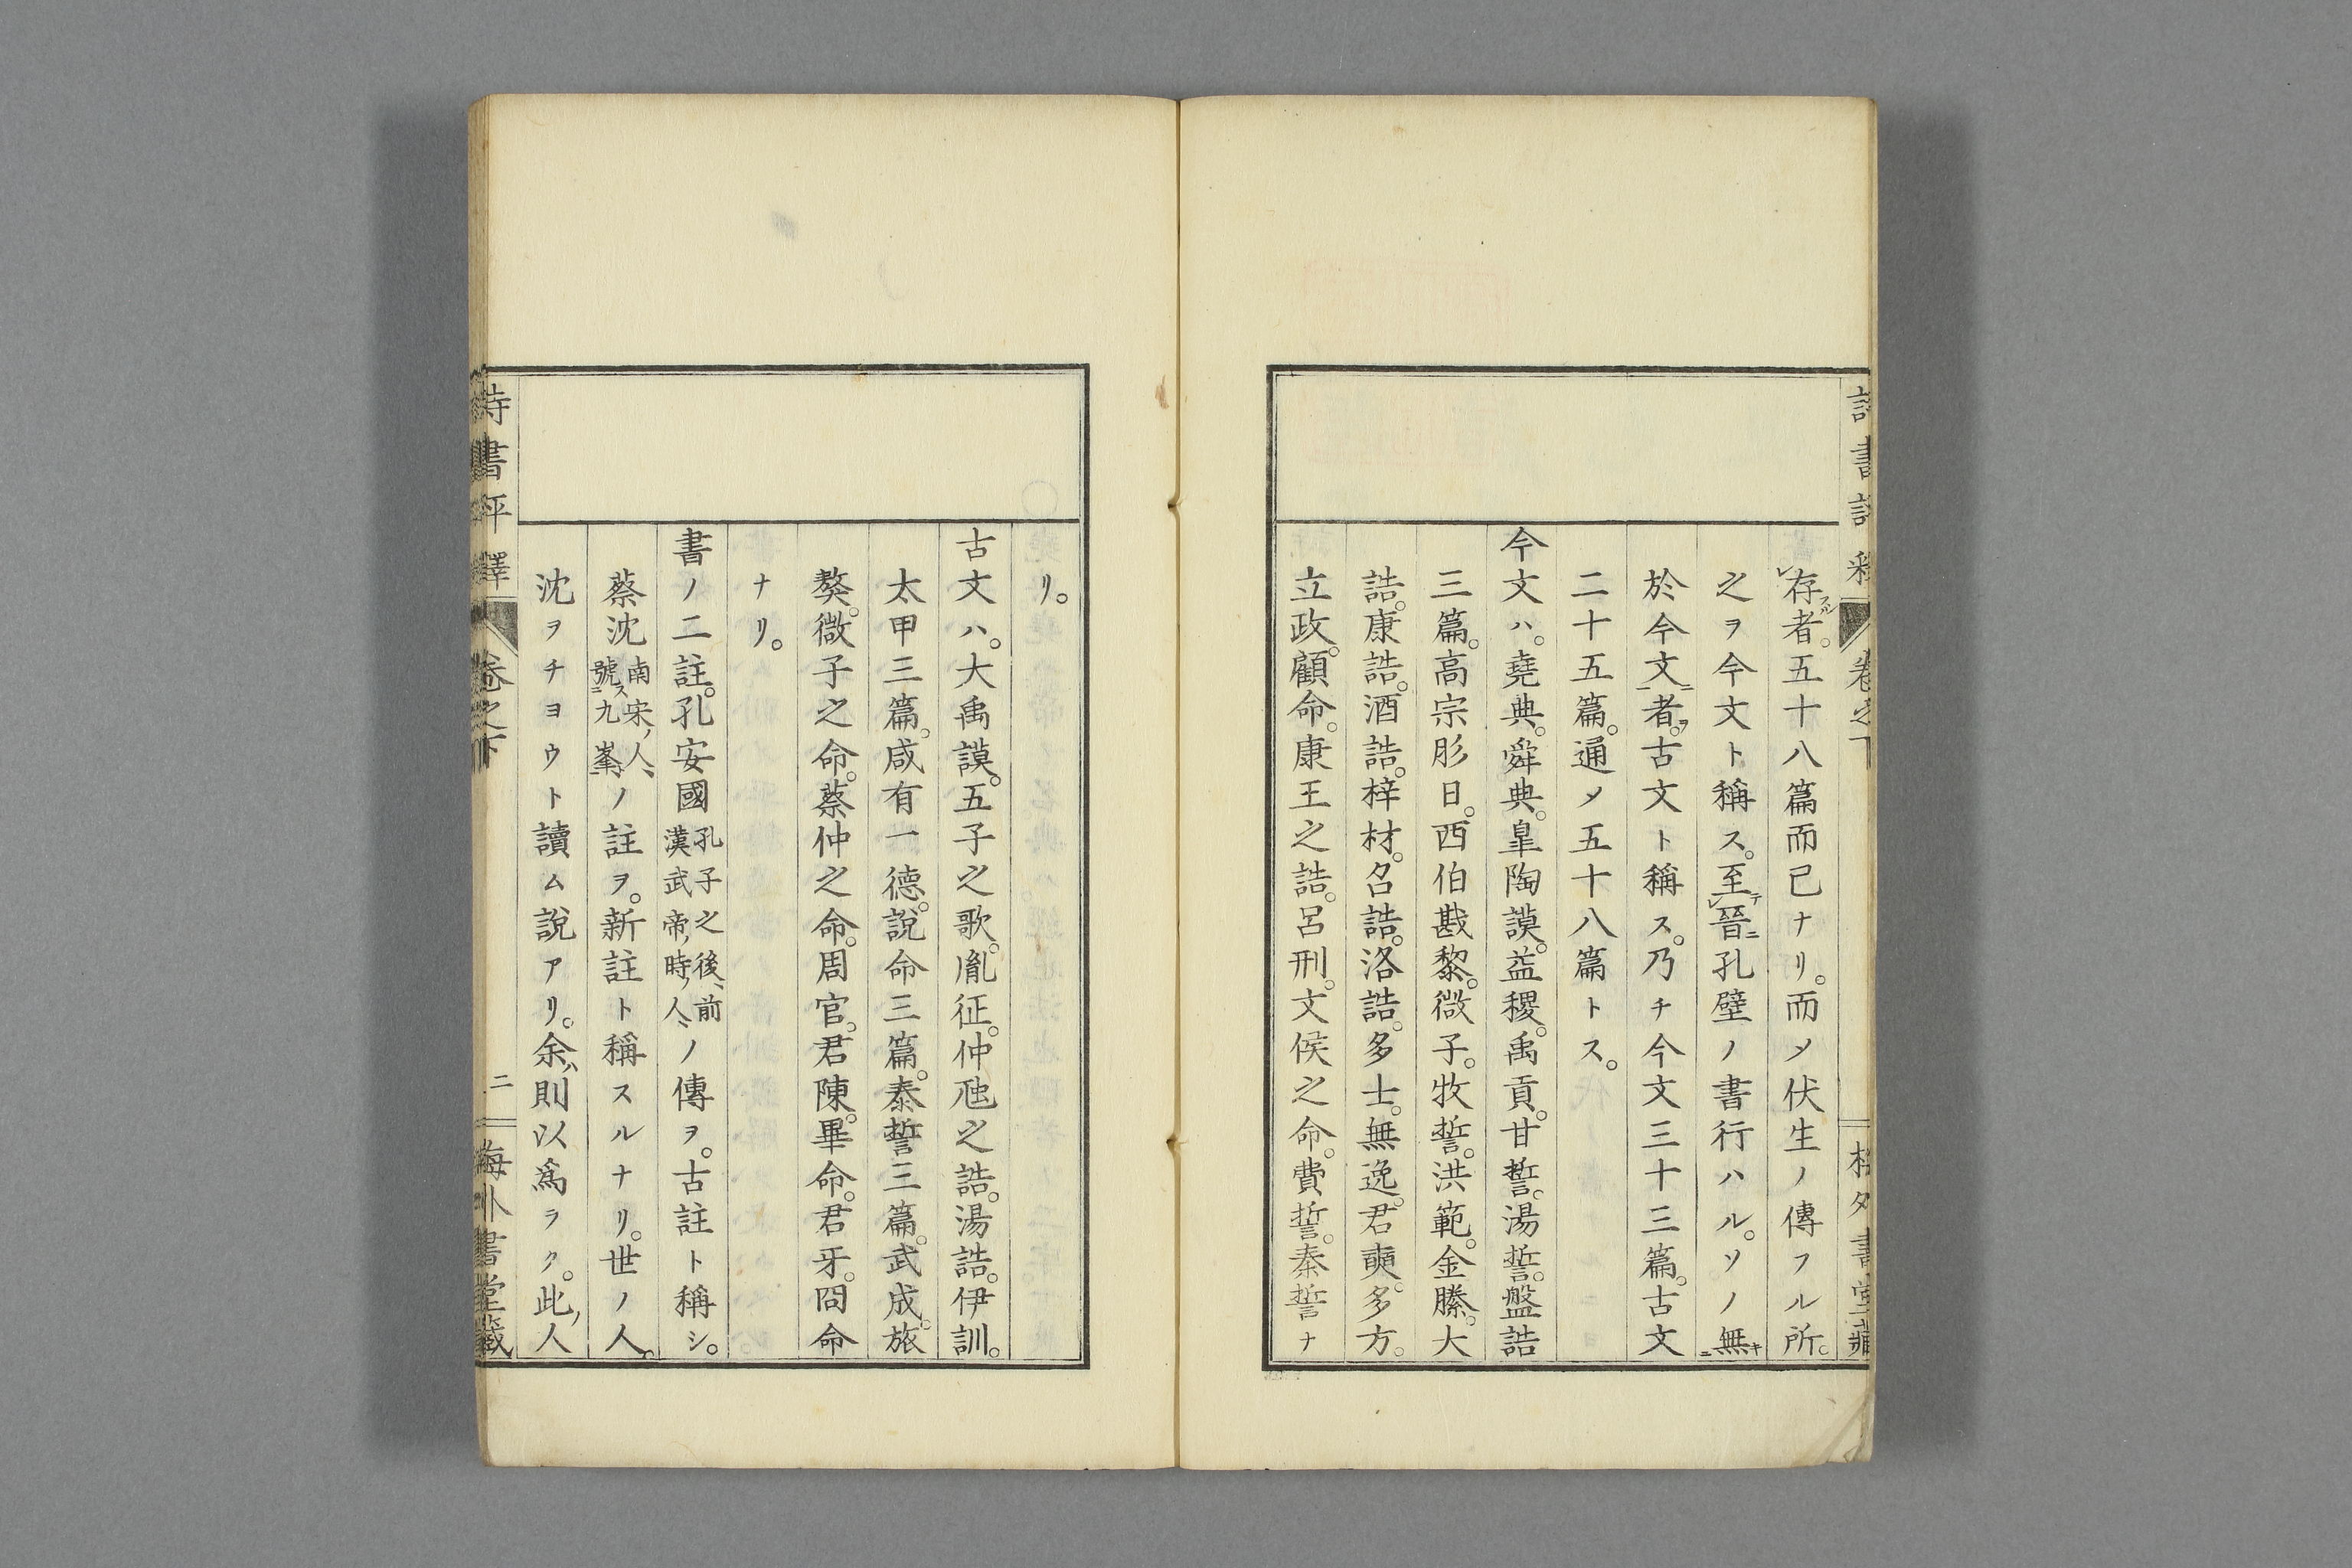 存スル者。五十八篇而已ナリ。而メ伏生ノ傳フル所。
之ヲ今文ト稱ス。至テ晉ニ孔壁ノ書行ハル。ソノ無キ
於今文ニ者ヲ。古文ト稱ス。乃チ今文三十三篇。古文
二十五篇。通メ五十八篇トス。
今文ハ。堯典。舜典。皐陶謨。益稷。禹貢。甘誓。湯誓。盤誥
三篇。高宗肜日。西伯戡黎。微子。牧誓。洪範。金縢。大
誥。康誥。酒誥。梓材。召誥。洛誥。多士。無逸。君奭。多方。
立政。顧命。康王之誥。呂刑。文侯之命。費誓。秦誓ナ
リ。
古文ハ。大禹謨。五子之歌。胤征。仲虺之誥。湯誥。伊訓。
太甲三篇。咸有一德。說命三篇。泰誓三篇。武成。旅
獒。微子之命。蔡仲之命。周官。君陳。畢命。君牙。冏命
ナリ。
書ノ二註。孔安國孔子之後、前漢武帝ノ時ノ人ノ傳ヲ。古註ト稱シ。
蔡沈南宋ノ人、號ス九峯トノ註ヲ。新註ト稱スルナリ。世ノ人。
沈ヲチヨウト讀ム說アリ。余ハ則以爲ラク。此ノ人
詩書評釋 卷之下 二 海外書堂藏